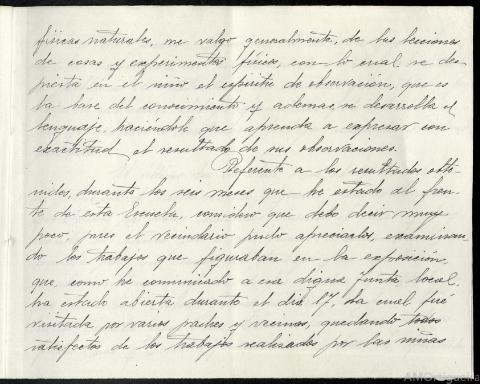 físicas naturales, me valgo generalmente, de las lecciones
de cosas y experimentos físicos, con lo cual se des-
pierta en el niño el espíritu de observación, que es
la base del conocimiento y además, se desarrolla el
lenguaje, haciéndole que aprenda a expresar con
exactitud el resultado de sus observaciones.
Referente a los resultados obte-
nidos, durante los seis meses que he estado al fren-
te de esta Escuela, considero que debo decir muy
poco, pues el vecindario pudo apreciarlos, examinan-
do los trabajos que figuraban en la exposición,
que, como he comunicado a esa digna Junta local,
ha estado abierta durante el día 17, la cual fué
visitada por varios padres y vecinos, quedando todos
satisfechos de los trabajos realizados por las niñas